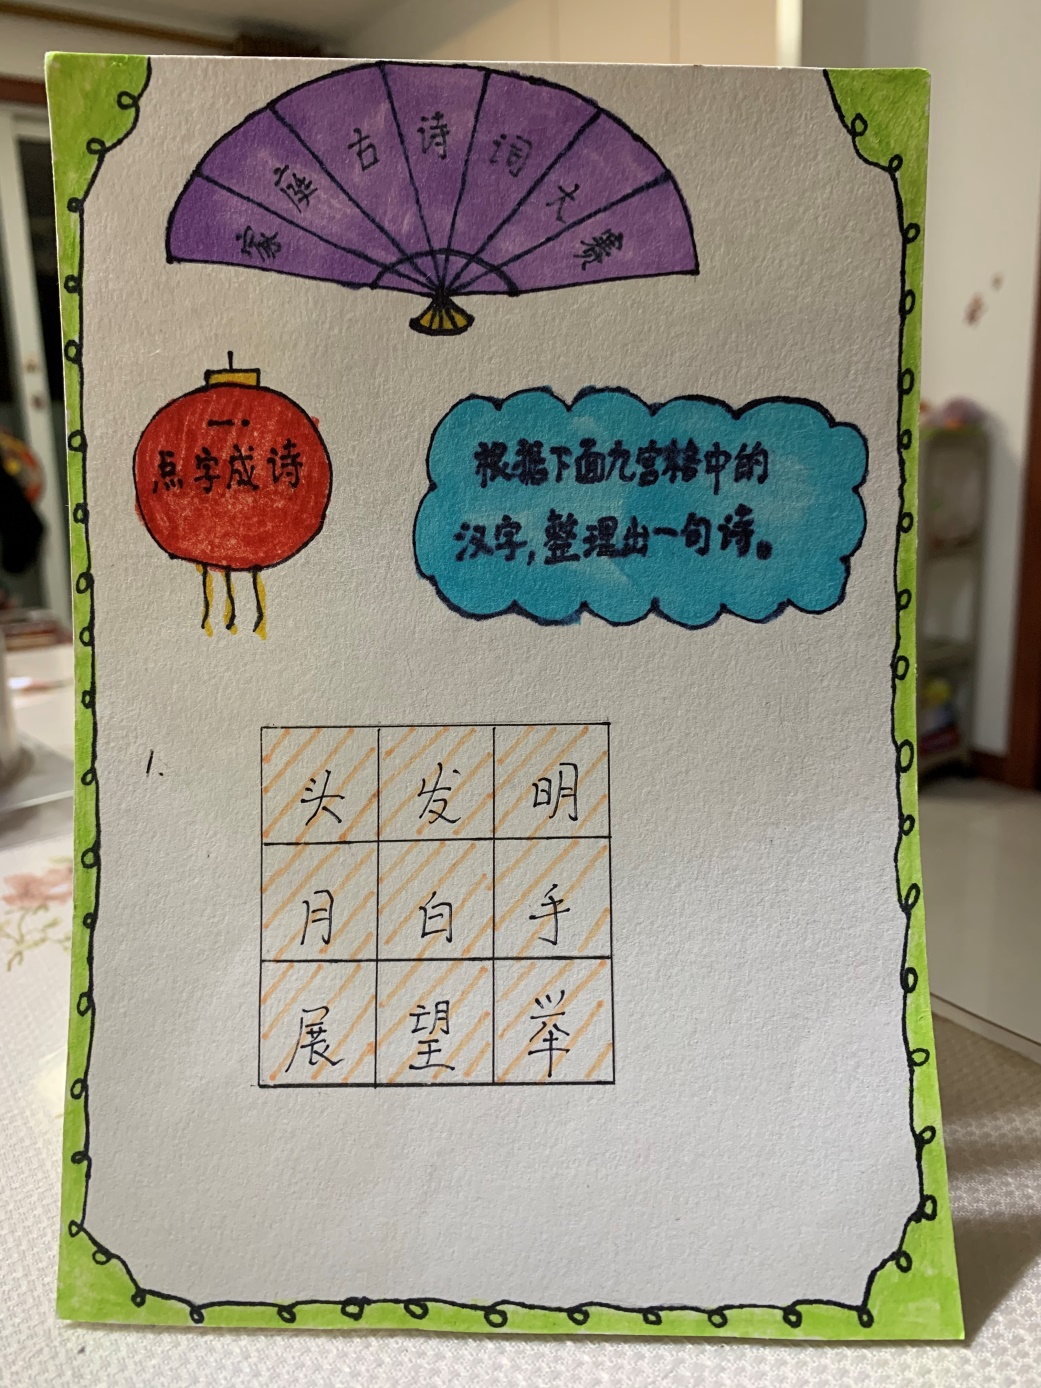 家庭古诗词大赛
一.
点字成诗
根据下面九宫格中的
汉字,整理出一句诗。
1.
头 发 明
月 白 手
展 望 举